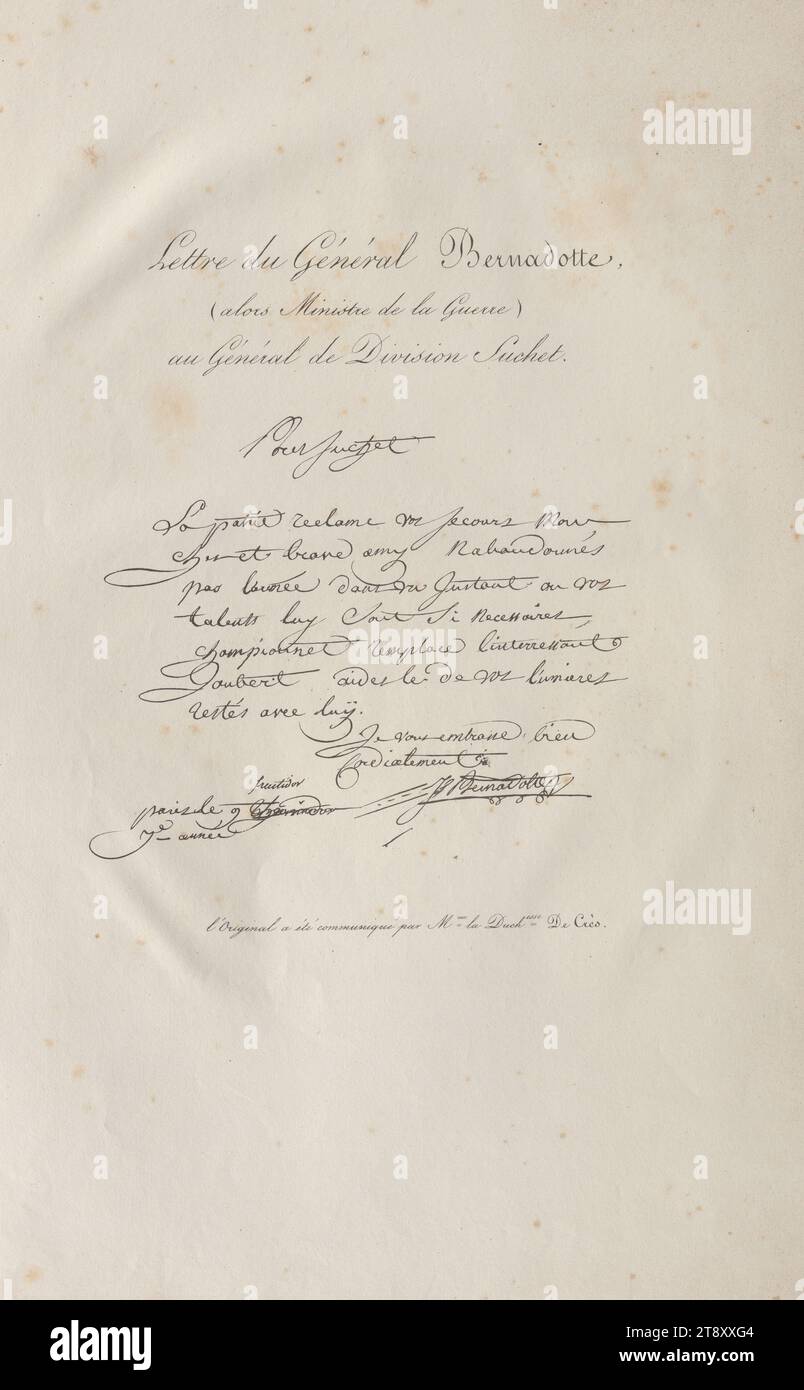 Lettre du Général Bernadotte,
(alors Ministre de la Guerre)
au Général de Division Suchet.
Pour Suchet
La patrie reclame vos secours mon
cher et brave amy Nabandonnés
pas l'armée dans un Instant ou vos
talents luy sont si necessaires,
championnet remplace l'interressant
Joubert aides le de vos lumieres
restés avec luÿ.
Je vous embrasse bien
Cordialement
J Bernadotte
fructidor
paris le 9 thermidor
7e année
l'Original a été communiqué par Mme la Duchesse De Crès.
alamy
alamy
alamy
Image ID: 2T8XXG4
www.alamy.com